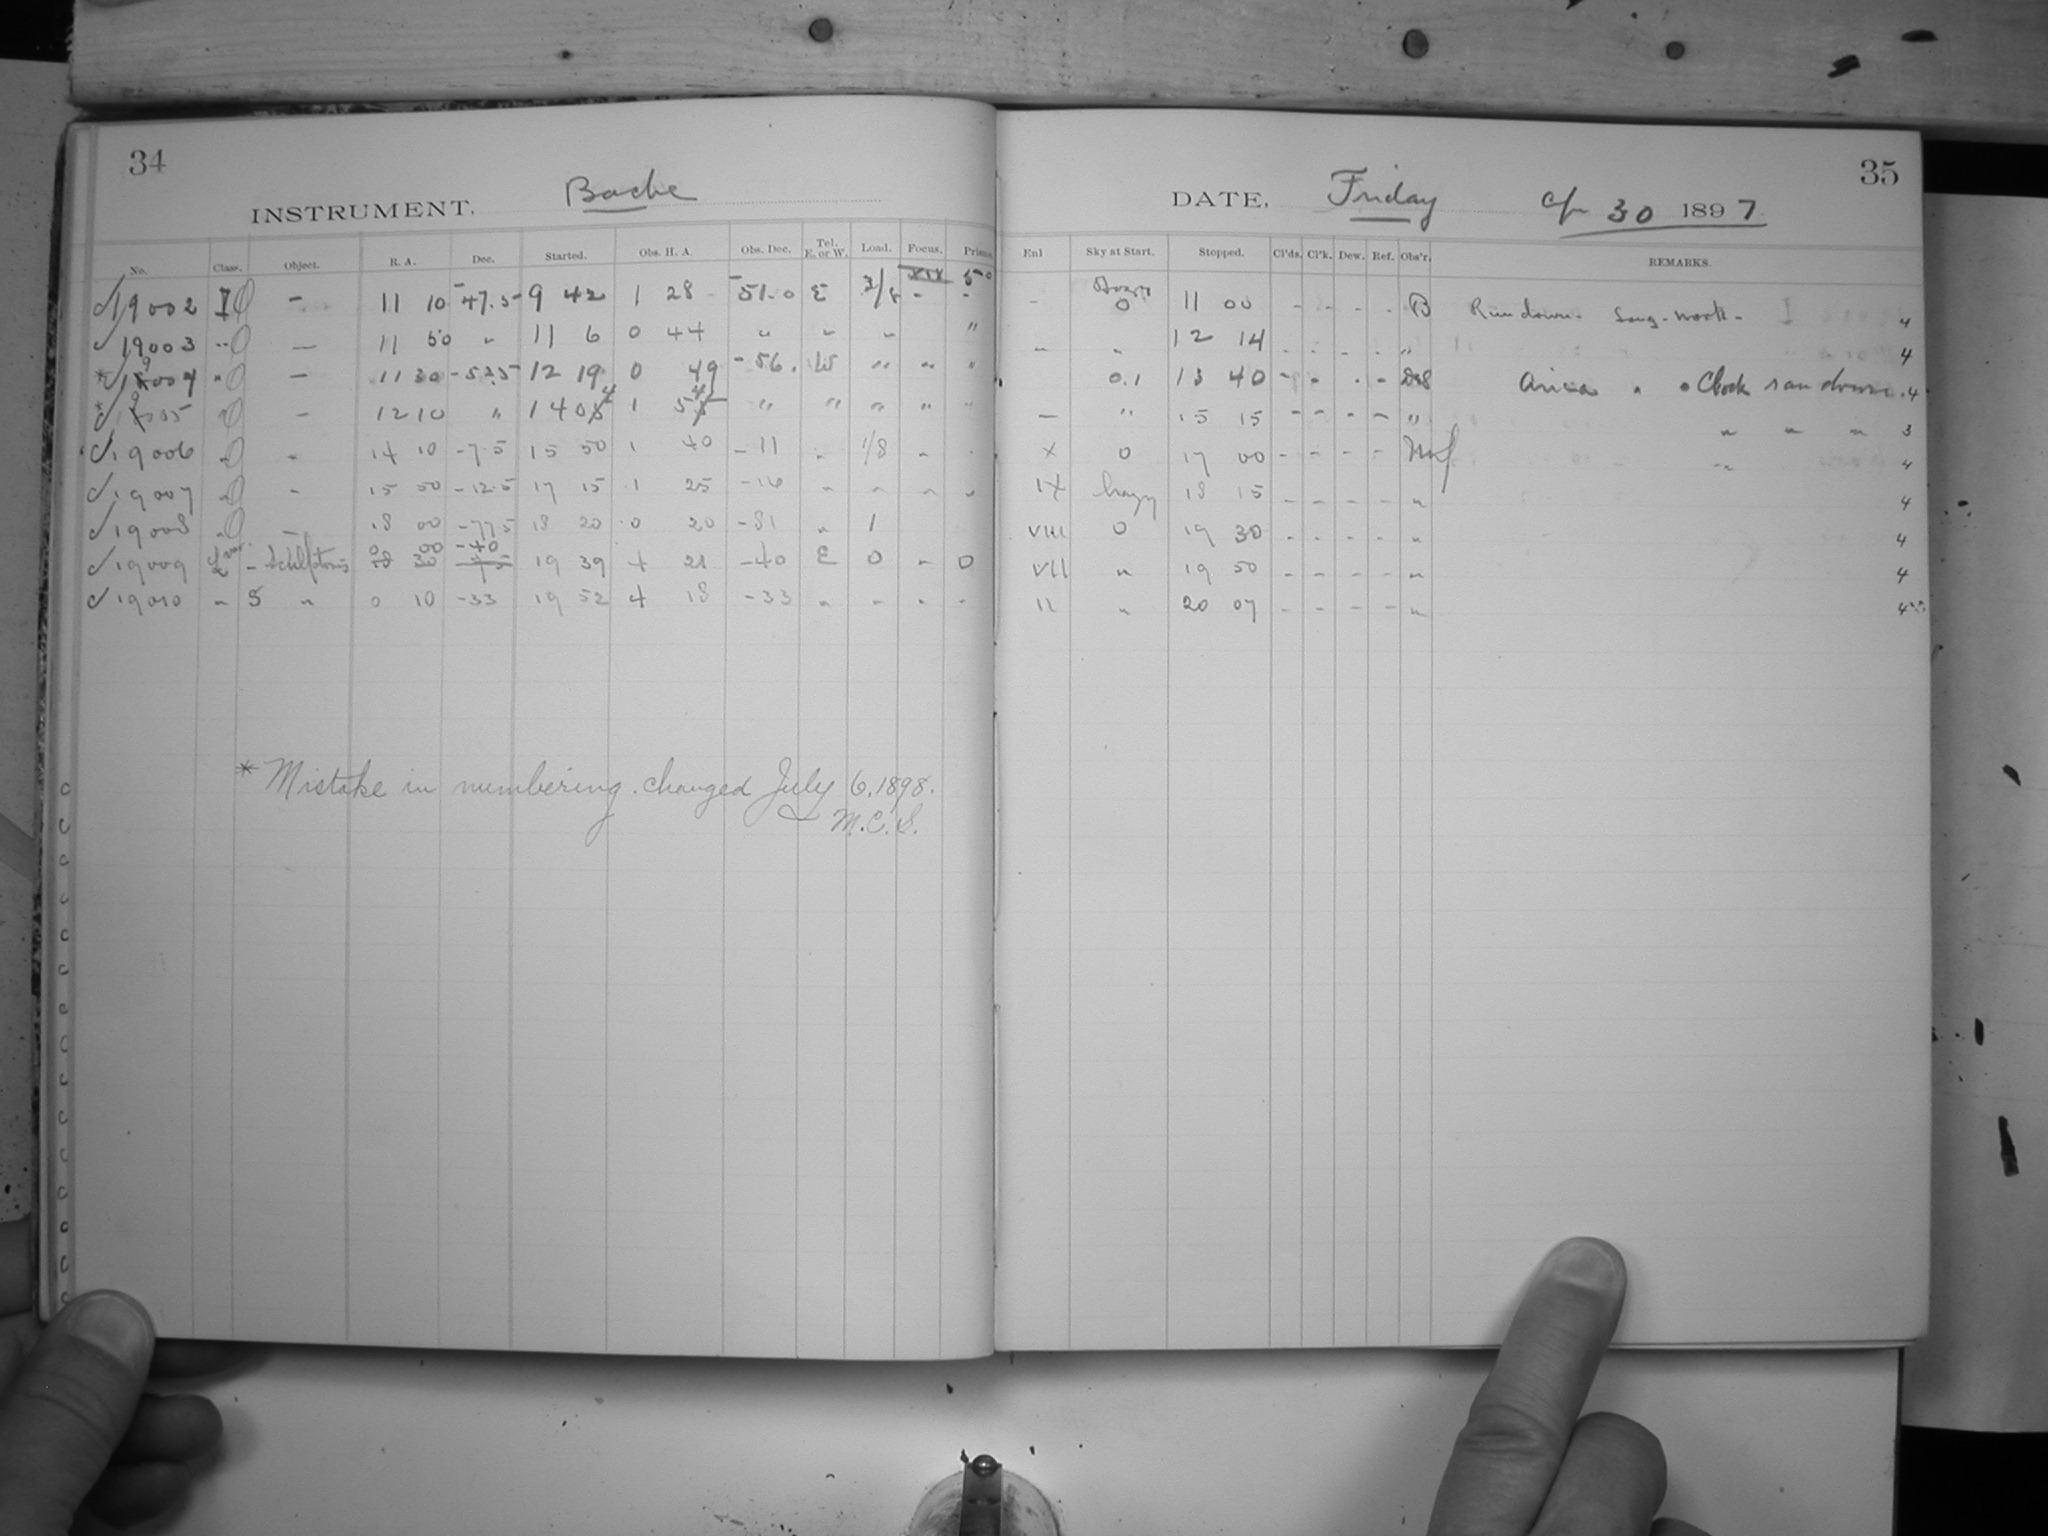 34
INSTRUMENT. Bache
No. Class. Object. R. A. Dec. Started. Obs. H. A. Obs. Dec. Tel. E. or W. Load. Focus. Prism.
19002 I - 11 10 -47.5 9 42 1 28 -51.0 E 2/8 - -
19003 " — 11 50 " 11 6 0 44 " " " "
* 19004 " — 11 30 -52.5 12 19 0 49 -56. W " " "
* 19005 - 12 10 " 14 04 1 54 " " " " "
19006 " " 14 10 -7.5 15 50 1 40 -11 " 1/8 " "
19007 " " 15 50 -12.5 17 15 1 25 -16 " " " "
19008 " — 18 00 -77.5 18 20 0 20 -81 " 1
19009 - Sculptoris 0 00 -40 19 39 + 21 -40 E 0 - 0
19010 " S " 0 10 -33 19 52 + 18 -33 " - - -
* Mistake in numbering. changed July 6, 1898.
M. C. S.
35
DATE, Friday Ap 30 1897
Enl Sky at Start. Stopped. Cl'ds. Cl'k. Dew. Ref. Obs'r. REMARKS.
- 0 11 00 - - - - B Run down. 4
" " 12 14 - - - - " 4
0.1 13 40 - - - - " Clock ran down. 4
— " 15 15 - - - - " " " " 3
X 0 17 00 - - - - " 4
IX hazy 18 15 - - - - " 4
VIII 0 19 30 - - - - " 4
VII " 19 50 - - - - " 4
" " 20 07 - - - - " 4